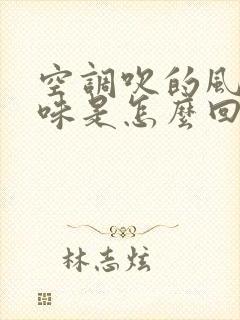 空調吹的風
味是怎麼回
林志炫